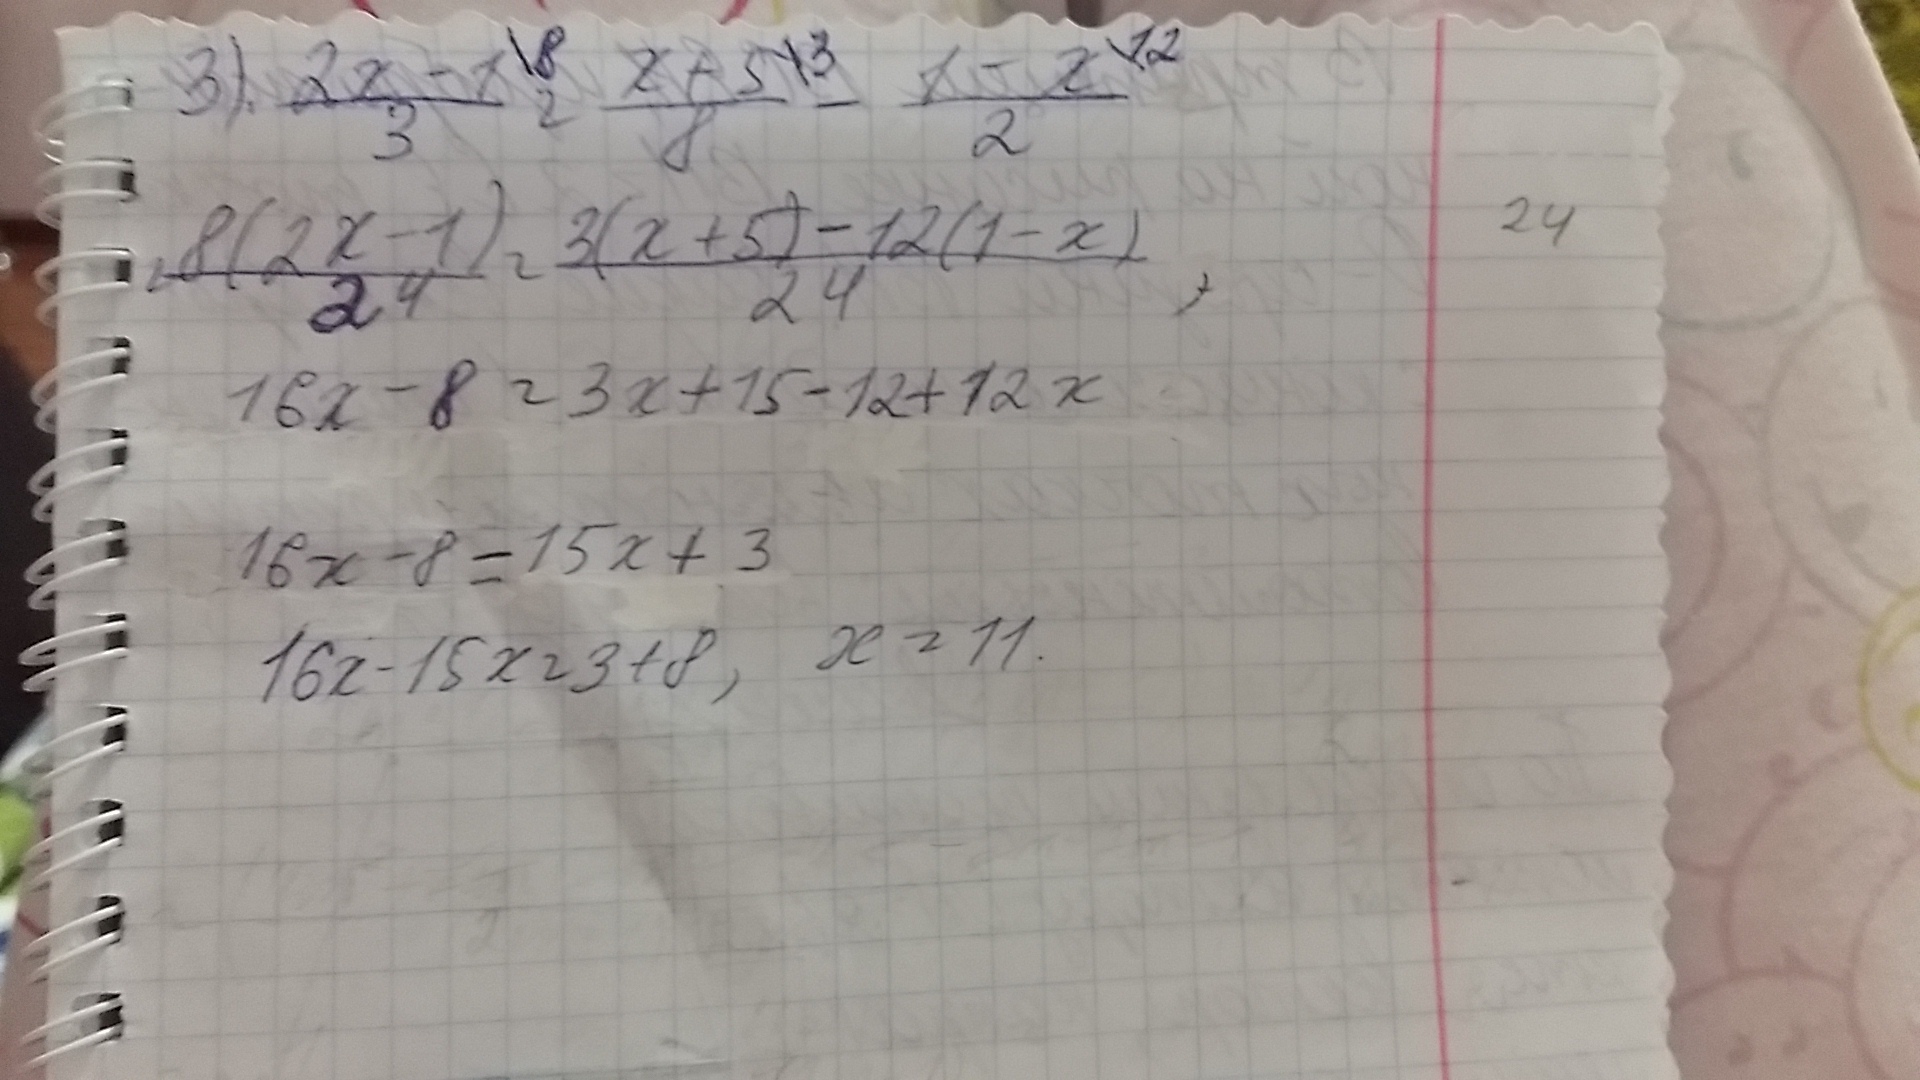 3). (2x-1)/3 \8 = (x+5)/8 \3 - (1-x)/2 \12
8(2x-1)/24 = (3(x+5)-12(1-x))/24, 24
16x-8=3x+15-12+12x
16x-8=15x+3
16x-15x=3+8, x=11.